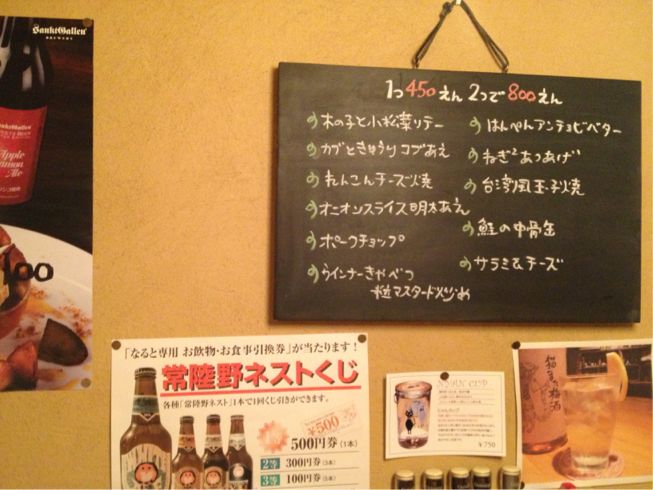 SanktGallen
BREWERY
SanktGallen
Apple
Cinnamon
Ale
100
1つ450えん 2つで800えん
木の子と小松菜ソテー
カブときゅうりコブあえ
れんこんチーズ焼
オニオンスライス明太あえ
ポークチョップ
ウインナーきゃべつ
粒マスタード炒め
はんぺんアンチョビバター
ねぎ²あつあげ
台湾風玉子焼
鮭の中骨缶
サラミ&チーズ
「なると専用 お飲物・お食事引換券」が当たります!
常陸野ネストくじ
各種「常陸野ネスト」1本で1回くじ引きができます。
¥500
500円券(1本)
2等 300円券(3本)
3等 100円券(5本)
CUP
¥750
梅酒